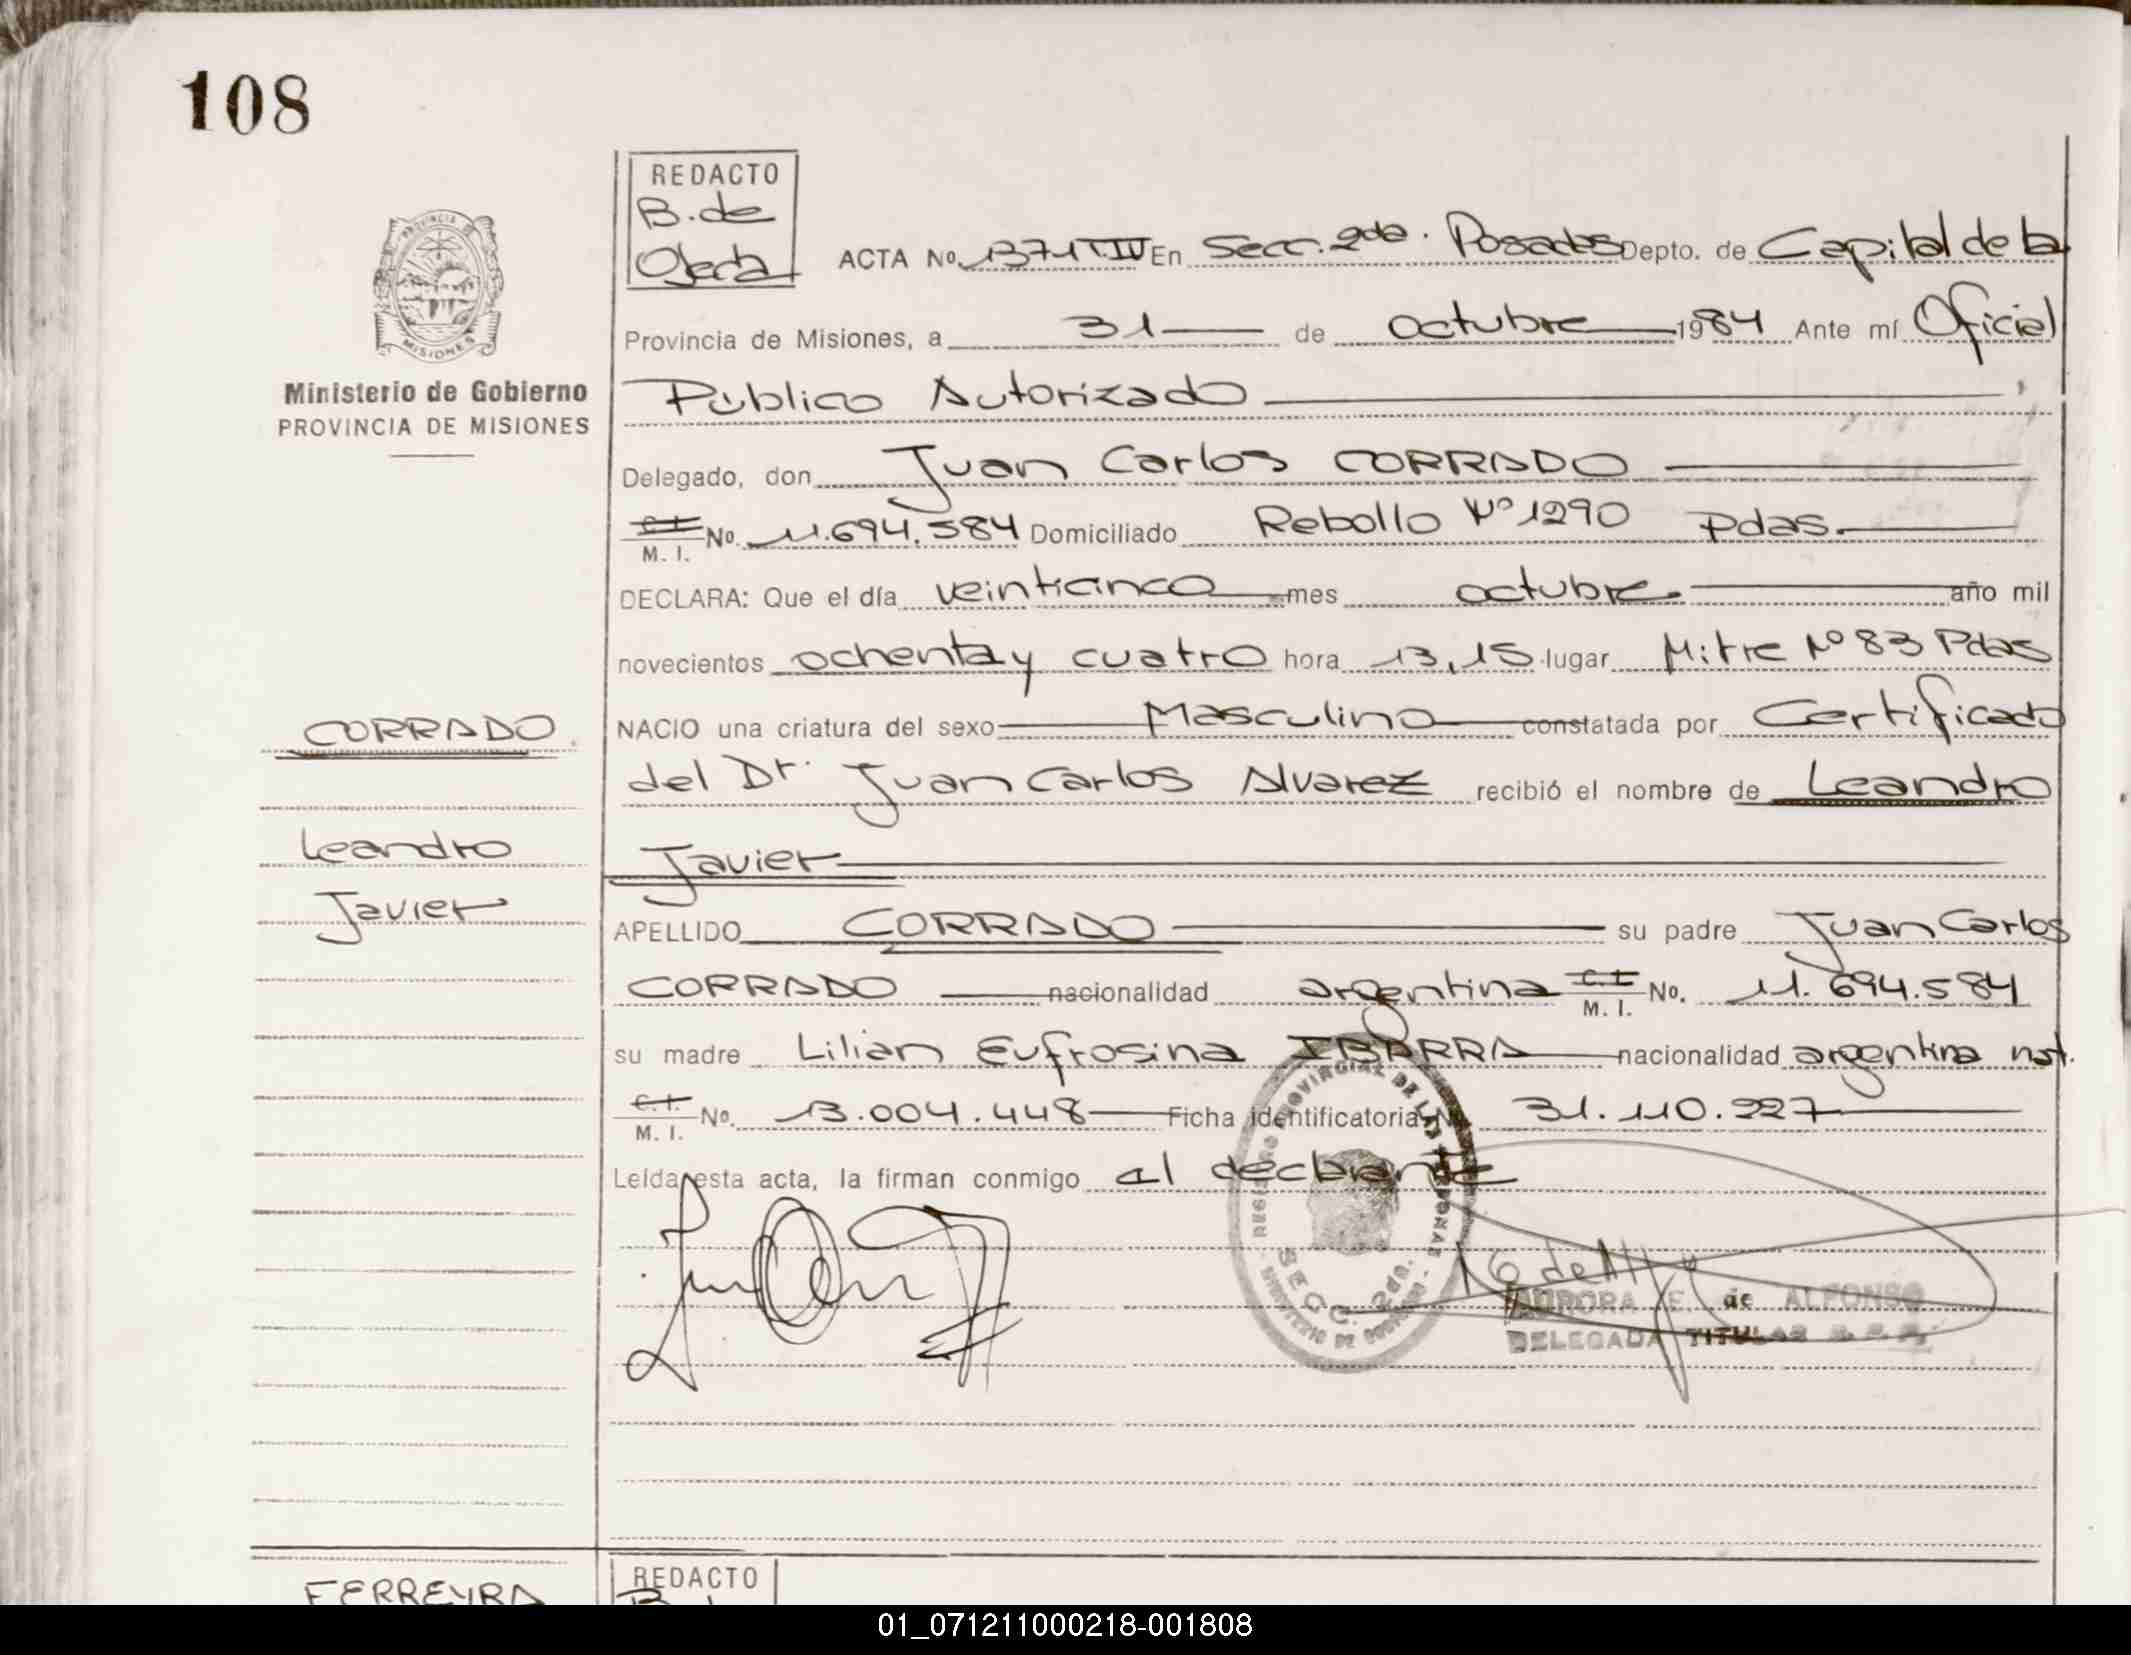 108
REDACTO
B. de
Ojeda
PROVINCIA DE
MISIONES
Ministerio de Gobierno
PROVINCIA DE MISIONES
ACTA No. 1371 T.IV En Secc. 2da. Posadas Depto. de Capital de la
Provincia de Misiones, a 31 de octubre 1984 Ante mí Oficial
Público Autorizado
Delegado, don Juan Carlos CORRADO
C. I. M. I. No. 11.694.584 Domiciliado Rebollo Nº 1290 Pdas.
DECLARA: Que el día veinticinco mes octubre año mil
novecientos ochenta y cuatro hora 13,15 lugar Mitre Nº 83 Pdas
CORRADO NACIO una criatura del sexo Masculino constatada por Certificado
del Dr. Juan Carlos Alvarez recibió el nombre de Leandro
Leandro Javier
Javier APELLIDO CORRADO su padre Juan Carlos
CORRADO nacionalidad argentina C. I. M. I. No. 11.694.584
su madre Lilian Eufrosina IBARRA nacionalidad argentina nat.
C. I. M. I. No. 13.004.448 Ficha identificatoria N 31.110.227
Leída esta acta, la firman conmigo el declarante
REGISTRO PROVINCIAL DE LAS PERSONAS
SECC. 2da.
MINISTERIO DE GOBIERNO
AURORA E. de ALFONSO
DELEGADA TITULAR R. P. P.
FERREYRA
REDACTO
01_071211000218-001808